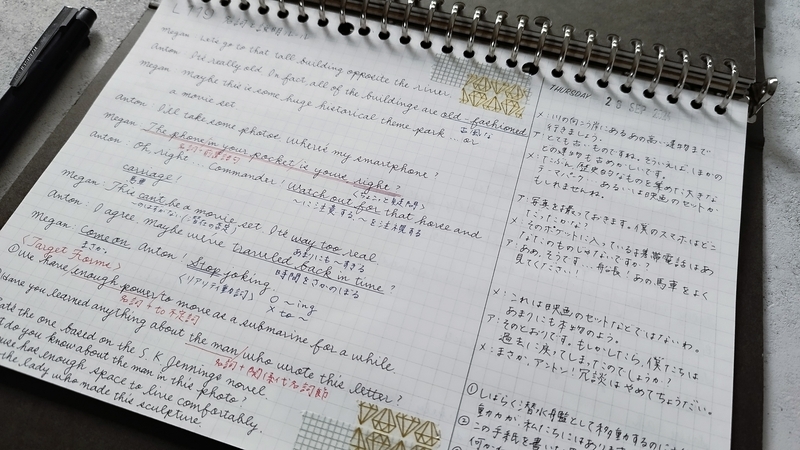 Megan: Let's go to that tall building opposite the river.
Anton: It's really old. In fact all of the buildings are old-fashioned
古風な
Megan: Maybe this is some huge historical theme park... or
a movie set.
Anton: I'll take some photos. Where's my smartphone?
Megan: The phone in your pocket is yours, right?
名詞+前置詞句
〈ちょっと見て用〉
Anton: Oh, right... Commander! Watch out for that horse and
carriage!
馬車
~に注意する、~を注視する
Megan: This can't be a movie set. It's way too real
あまりにも~すぎる
Anton: I agree. Maybe we've traveled back in time?
時間をさかのぼる
Megan: Come on Anton! Stop joking.
まさか
〈リアリティ動名詞〉
○ ~ing
× to ~
〈Target Forms〉
①We have enough power to move as a submarine for a while.
名詞+to不定詞
Have you learned anything about the man who wrote this letter?
名詞+関係代名詞節
the one based on the S.K. Jennings novel
do you know about the man in this photo?
has enough space to live comfortably.
the lady who made this sculpture.
THURSDAY 2 SEP
メ:川の向こう岸にあるあの高い建物まで
行きましょう。
ア:とても古いものですね。そういえば、ほかの
どの建物も古めかしいです。
メ:たぶん、歴史的なものを集めた大きな
テーマパーク、あるいは映画のセットか
もしれませんね。
ア:写真を撮っておきます。僕のスマホはどこ
だったかな?
メ:そのポケットに入っている携帯電話はあ
なたのものじゃないですか?
ア:ああ、そうです…船長!あの馬車をよく
見てください!
メ:これは映画のセットなどではないわ。
あまりにも本物のよう。
ア:そのとおりです。もしかしたら、僕たちは
過去に戻ってしまったのでしょうか?
メ:まさか、アントン!冗談はやめてちょうだい。
①しばらく潜水艦として移動するのに
動力が、私たちにはあります
②この手紙を書いた
何か